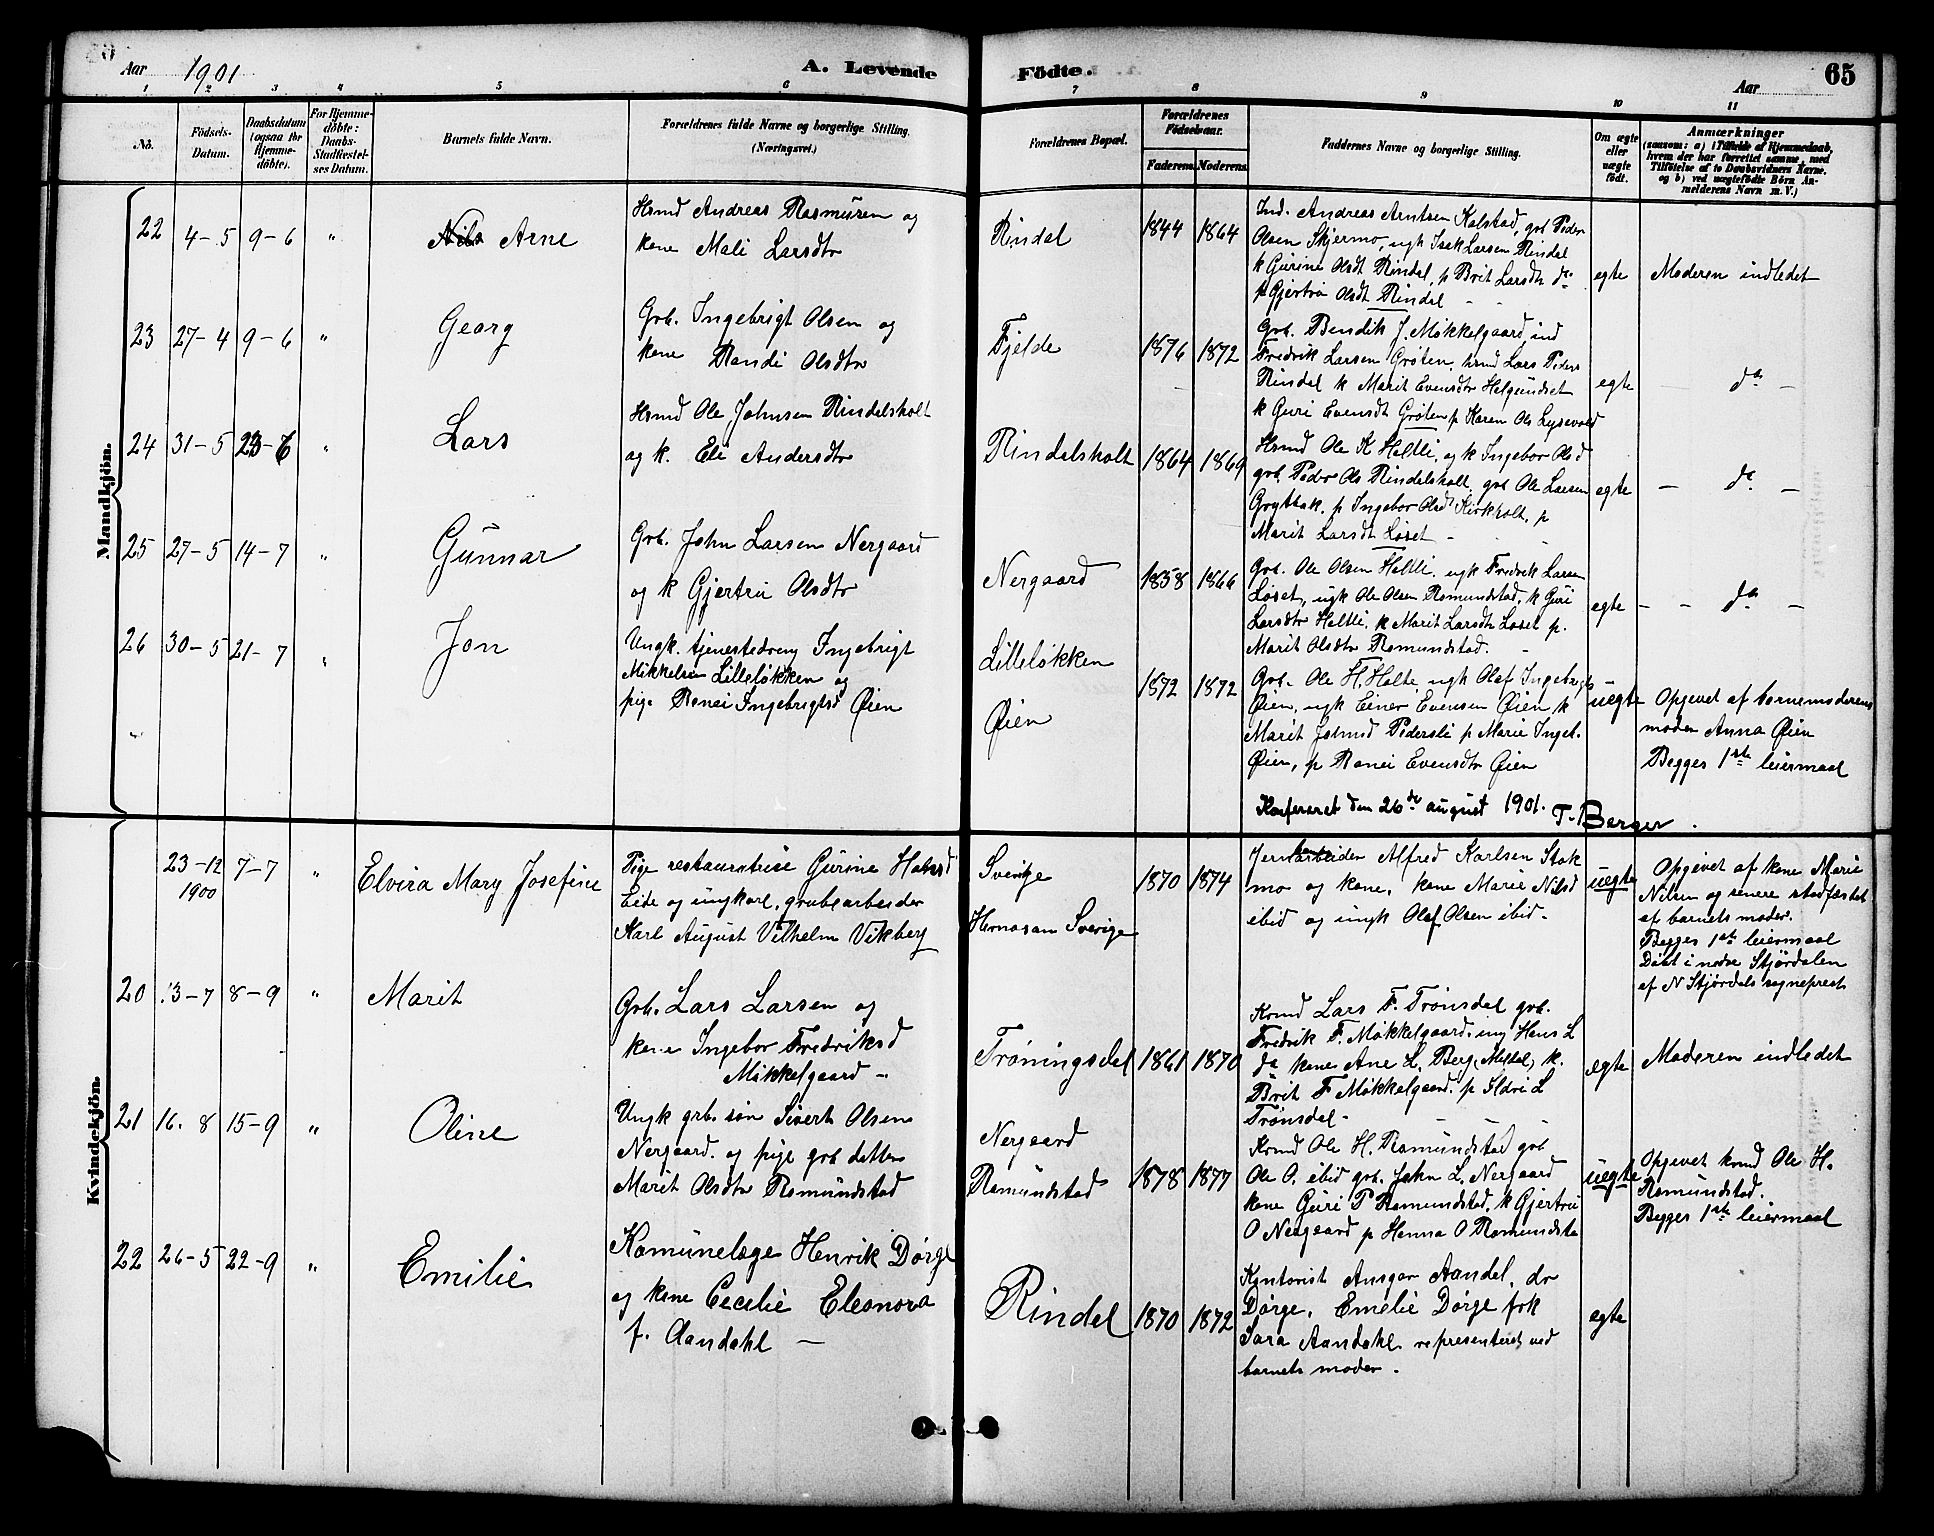 Aar 1901
A. Levende
Födte.
Aar
65
1 2 3 4 5 6 7 8 9 10 11
No.
Födsels-
Datum.
Daabsdatum
(ogsaa for
Hjemme-
döbte).
For Hjemme-
döbte:
Daabs-
Stadfæstel-
ses Datum.
Barnets fulde Navn.
Forældrenes fulde Navne og borgerlige Stilling.
(Næringsvei.)
Forældrenes Bopæl.
Forældrenes
Födselsaar.
Faderens
Moderens
Faddernes Navne og borgerlige Stilling.
Om ægte
eller
uægte
födt.
Anmærkninger
(saasom: a) i Tilfælde af Hjemmedaab,
hvem der har forrettet samme, med
Tilföielse af to Daabsvidners Navne,
og b) ved uægtefödte Börn An-
melderens Navn m. V.)
Mandkjön.
22 4-5 9-6 " Nils Arne
Hsmd Andreas Rasmusen og
kone Mali Larsdtr
Rindal
1844 1864
Ind. Andreas Arntsen Kalstad, grb Peder
Olsen Skjermo, ugk Isak Larsen Rindal
k Gurine Olsdt Rindal, p Brit Larsdtr do
p Gjertru Olsdt Rindal -
egte
Moderen indledet
23 27-4 9-6 " Georg
Grb. Ingebrigt Olsen og
kone Randi Olsdtr
Fjelde
1876 1872
Grb. Bendik J. Møkkelgaard, ind
Fredrik Larsen Grøten, hsmd Lars Peders
Rindal k Marit Evensdtr Helgundset
k Guri Evensdt Grøten p Karen Ols Lysevold
egte
- do -
24 31-5 23-6 " Lars
Hsmd Ole Johnsen Rindalsholt
og k. Eli Andersdtr
Rindalsholt
1864 1869
Hsmd Ole K Holtli, og k Ingebor Olsd
grb. Peder Ols Rindalsholt, grb Ole Larsen
Gryttbak, p Ingebor Olsd Kirkholt, p
Marit Larsdt Løset -
egte
- do -
25 27-5 14-7 " Gunnar
Grb. John Larsen Nergaard
og k Gjertru Olsdtr
Nergaard
1858 1866
Grb. Ole Olsen Holtli, ugk Fredrik Larsen
Løset, ugk Ole Olsen Romundstad, k Guri
Larsdtr Holtli, k Marit Larsdtr Løset p.
Marit Olsdtr Romundstad.
egte
- - do -
26 30-5 21-7 " Jon
Ungk. tjenestedreng Ingebrigt
Mikkelsen Lilleløkken og
pige Ranei Ingebrigtsd Øien
Lilleløkken
Øien
1872 1872
Grb. Ole H. Holte ugk Olaf Ingebrigts
Øien, ugk Einer Evensen Øien k
Marit Johnsd Pedersli p Marie Ingeb.
Øien, p Ranei Evensdtr Øien
uegte
Opgivet af barnemoderens
moder Anna Øien
Begges 1ste leiermaal
Konfereret den 26de august 1901. T. Berger.
Kvindekjön.
23-12
1900
7-7 " Elvira Mary Josefine
Pige restauratrise Gurine Halvsd
Eide og ungkarl, grubearbeider
Karl August Vilhelm Vikberg
Sverige
Hernosan Sverige
1870 1874
Jernbanearbeider Alfred Karlsen Stok
mo og kone, kone Marie Nilsd
ibid og ungk Olaf Olsen ibid.
uegte
Opgivet af kone Marie
Nilsen og senere stadfæstet
af barnets moder.
Begges 1ste leiermaal
Døbt i nedre Stjørdalen
af N Stjørdals sogneprest
20 13-7 8-9 " Marit
Grb. Lars Larsen og
kone Ingebor Fredriksd
Møkkelgaard -
Trøningsdal
1861 1870
Kmd Lars F. Trønsdal grb.
Fredrik F. Møkkelgaard, ung Hans L
do kone Ane L. Berg, Meldal, k.
Brit F Møkkelgaard. p Ildri L
Trønsdal -
egte
Moderen indledet
21 16. 8 15-9 " Oline
Ungk grb. søn Sivert Olsen
Nergaard og pige grb datter
Marit Olsdtr Romundstad
Nergaard
Romundstad
1878 1877
Kmd Ole H. Romundstad grb
Ole O. ibid grb. John L. Nergaard
kone Guri P Romundstad, k Gjertru
O Nergaard p Hanna O Romundsta
uegte
Opgivet kmd Ole H.
Romundstad.
Begges 1ste leiermaal
22 26-5 22-9 " Emilie
Komunelæge Henrik Dørge
og kone Cecilie Eleonora
f. Aandahl -
Rindal
1870 1872
Kontorist Ansgar Aandal, dr
Dørge, Emelie Dørge frk
Sara Aandahl representeret ved
barnets moder.
egte